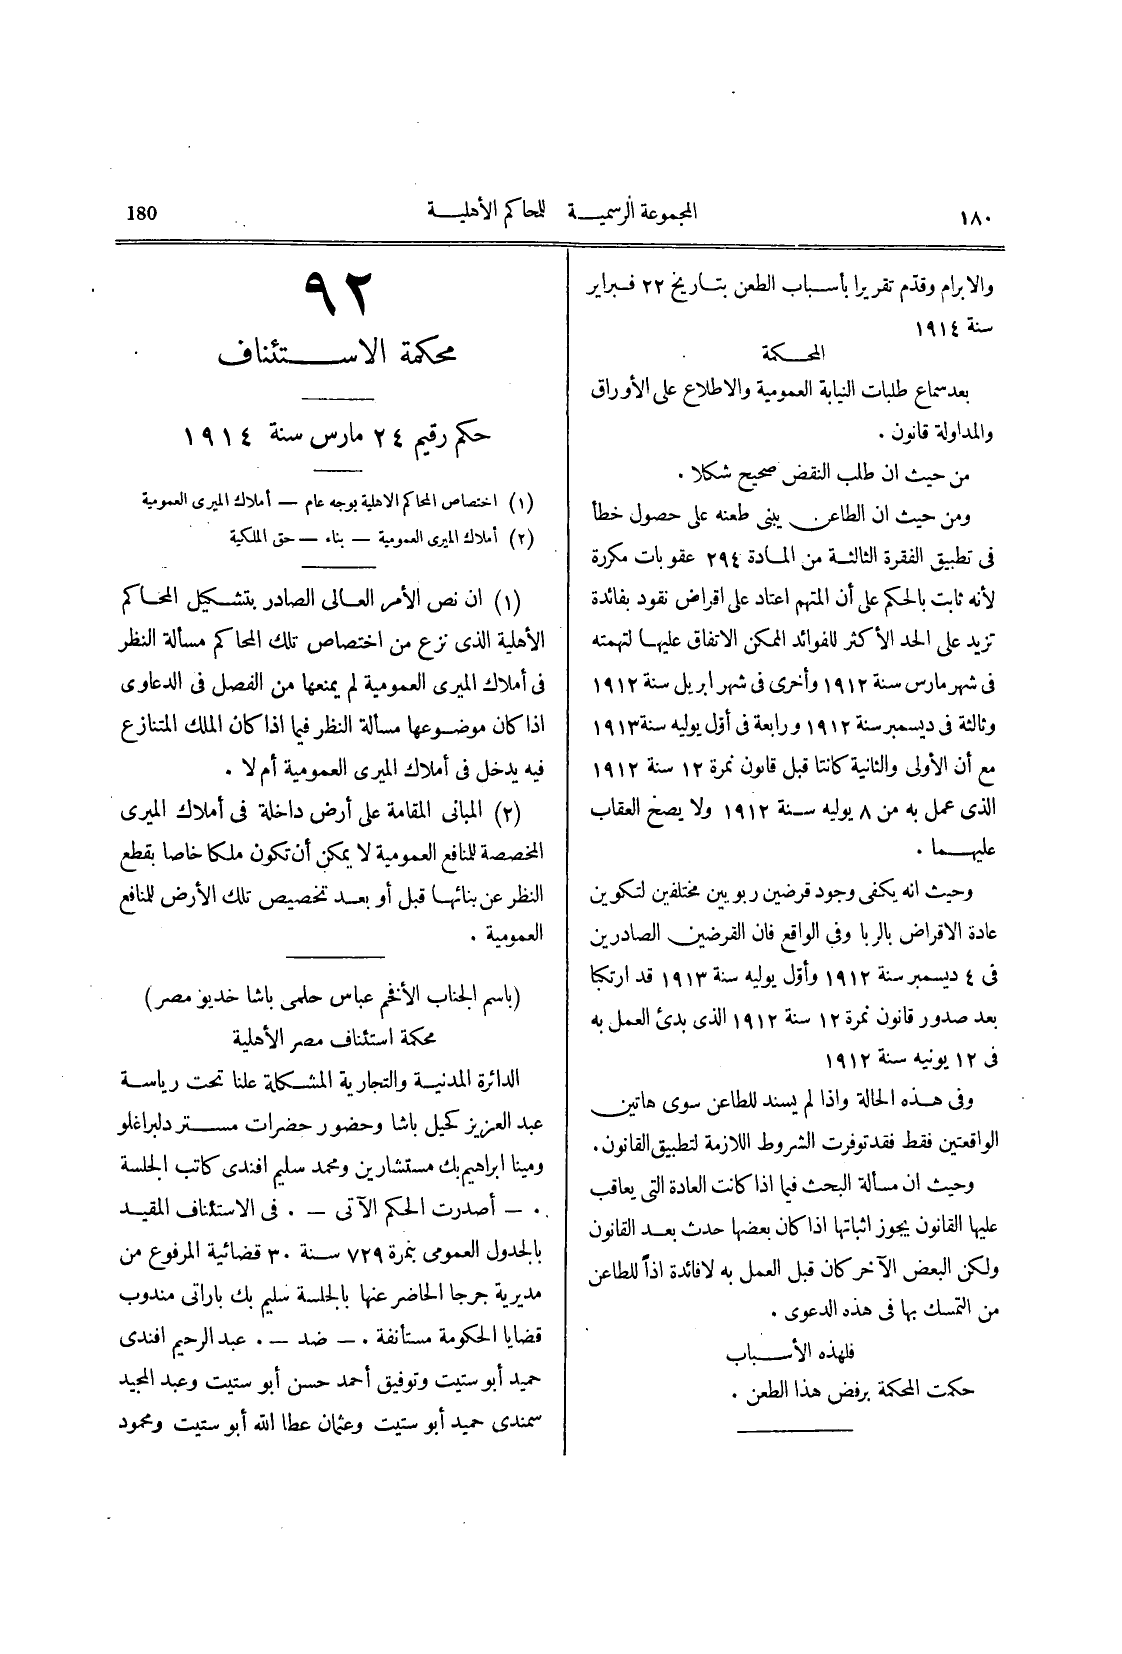 ١٨٠
المجموعة الرسمية للمحاكم الأهلية
180
والابرام وقدّم تقريرا بأسباب الطعن بتاريخ ٢٢ فبراير
سنة ١٩١٤
المحكمة
بعد سماع طلبات النيابة العمومية والاطلاع على الأوراق
والمداولة قانون .
من حيث ان طلب النقض صحيح شكلا .
ومن حيث ان الطاعن يبنى طعنه على حصول خطأ
فى تطبيق الفقرة الثالثة من المادة ٢٩٤ عقوبات مكررة
لأنه ثابت بالحكم على أن المتهم اعتاد على اقراض نقود بفائدة
تزيد على الحد الأكثر للفوائد الممكن الاتفاق عليها لتهمته
فى شهر مارس سنة ١٩١٢ وأخرى فى شهر ابريل سنة ١٩١٢
وثالثة فى ديسمبر سنة ١٩١٢ ورابعة فى أوّل يوليه سنة ١٩١٣
مع أن الأولى والثانية كانتا قبل قانون نمرة ١٢ سنة ١٩١٢
الذى عمل به من ٨ يوليه سنة ١٩١٢ ولا يصح العقاب
عليهما .
وحيث انه يكفى وجود قرضين ربويين مختلفين لتكوين
عادة الاقراض بالربا وفى الواقع فان القرضين الصادرين
فى ٤ ديسمبر سنة ١٩١٢ وأوّل يوليه سنة ١٩١٣ قد ارتكبا
بعد صدور قانون نمرة ١٢ سنة ١٩١٢ الذى بدئ العمل به
فى ١٢ يونيه سنة ١٩١٢
وفى هذه الحالة واذا لم يسند للطاعن سوى هاتين
الواقعتين فقط فقد توفرت الشروط اللازمة لتطبيق القانون.
وحيث ان مسألة البحث فيما اذا كانت العادة التى يعاقب
عليها القانون يجوز اثباتها اذا كان بعضها حدث بعد القانون
ولكن البعض الآخر كان قبل العمل به لا فائدة اذاً للطاعن
من التمسك بها فى هذه الدعوى .
فلهذه الأسباب
حكمت المحكمة برفض هذا الطعن .
٩٢
محكمة الاستئناف
حكم رقيم ٢٤ مارس سنة ١٩١٤
(١) اختصاص المحاكم الاهلية بوجه عام — أملاك الميرى العمومية
(٢) أملاك الميرى العمومية — بناء — حق الملكية
(١) ان نص الأمر العالى الصادر بتشكيل المحاكم
الأهلية الذى نزع من اختصاص تلك المحاكم مسألة النظر
فى أملاك الميرى العمومية لم يمنعها من الفصل فى الدعاوى
اذا كان موضوعها مسألة النظر فيما اذا كان الملك المتنازع
فيه يدخل فى أملاك الميرى العمومية أم لا .
(٢) المبانى المقامة على أرض داخلة فى أملاك الميرى
المخصصة للنافع العمومية لا يمكن أن تكون ملكا خاصا بقطع
النظر عن بنائها قبل أو بعد تخصيص تلك الأرض للنافع
العمومية .
(باسم الجناب الأفخم عباس حلمى باشا خديو مصر)
محكمة استئناف مصر الأهلية
الدائرة المدنية والتجارية المشكلة علنا تحت رياسة
عبد العزيز كحيل باشا وحضور حضرات مستر دلبراغلو
ومينا ابراهيم بك مستشارين ومحمد سليم افندى كاتب الجلسة
. — أصدرت الحكم الآتى — . فى الاستئناف المقيد
بالجدول العمومى بنمرة ٧٢٩ سنة ٣٠ قضائية المرفوع من
مديرية جرجا الحاضر عنها بالجلسة سليم بك باراتى مندوب
قضايا الحكومة مستأنفة . — ضد — . عبد الرحيم افندى
حميد أبو ستيت وتوفيق أحمد حسن أبو ستيت وعبد المجيد
سمندى حميد أبو ستيت وعثمان عطا الله أبو ستيت ومحمود